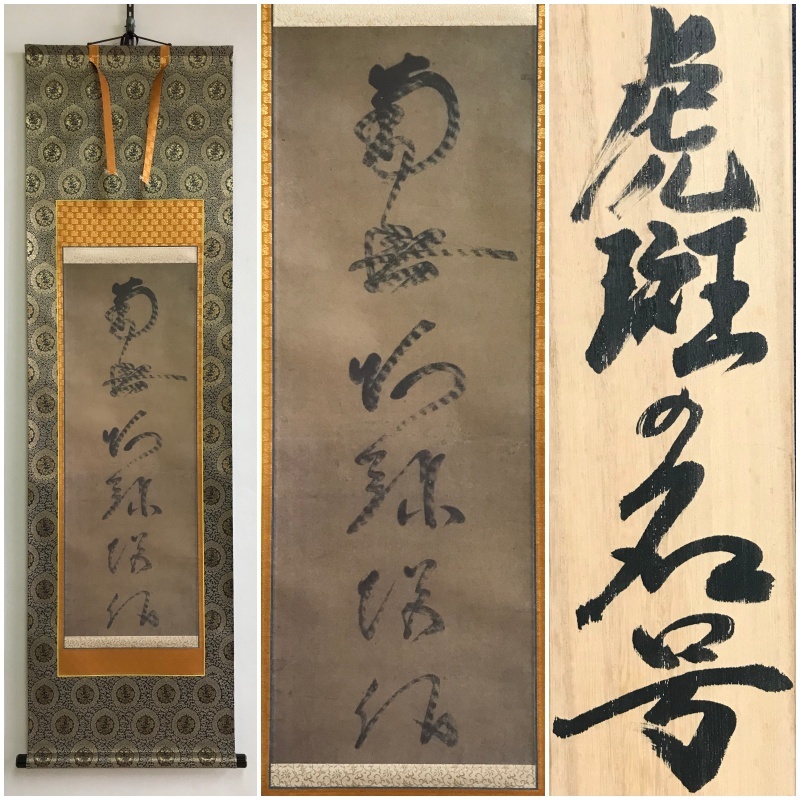 南無阿弥陀佛
南無阿弥陀佛
虎斑の名号